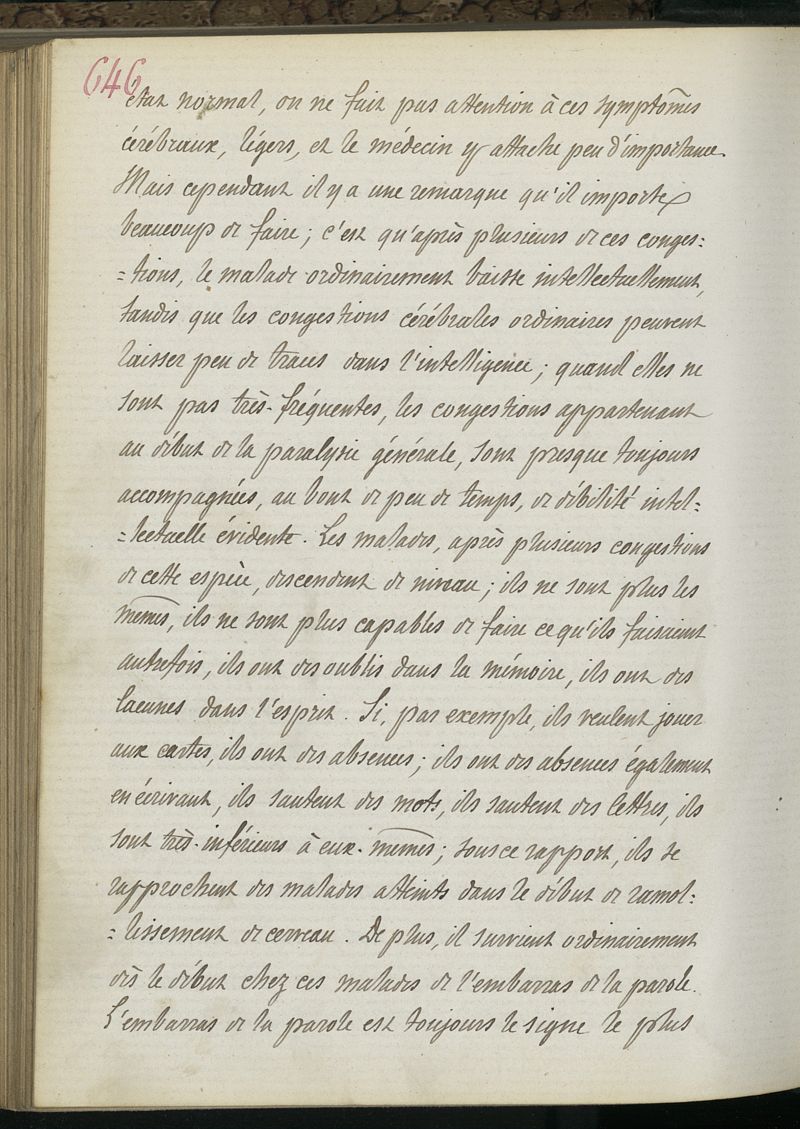 646
état normal, on ne fait pas attention à ces symptômes
cérébraux, légers, et le médecin y attache peu d'importance.
Mais cependant il y a une remarque qu'il importe
beaucoup de faire ; c'est qu'après plusieurs de ces conges=
=tions, le malade ordinairement baisse intellectuellement,
tandis que les congestions cérébrales ordinaires peuvent
laisser peu de traces dans l'intelligence ; quand elles ne
sont pas très-fréquentes, les congestions appartenant
au début de la paralysie générale, sont presque toujours
accompagnées, au bout de peu de temps, de débilité intel=
=lectuelle évidente. Les malades, après plusieurs congestions
de cette espèce, descendent de niveau ; ils ne sont plus les
mêmes, ils ne sont plus capables de faire ce qu'ils faisaient
autrefois, ils ont des oublis dans la mémoire, ils ont des
lacunes dans l'esprit. Si, par exemple, ils veulent jouer
aux cartes, ils ont des absences ; ils ont des absences également
en écrivant, ils sautent des mots, ils sautent des lettres, ils
sont très-inférieurs à eux-mêmes ; sous ce rapport, ils se
rapprochent des malades atteints dans le début de ramol=
=lissement de cerveau. De plus, il survient ordinairement
dès le début chez ces malades de l'embarras de la parole.
L'embarras de la parole est toujours le signe le plus